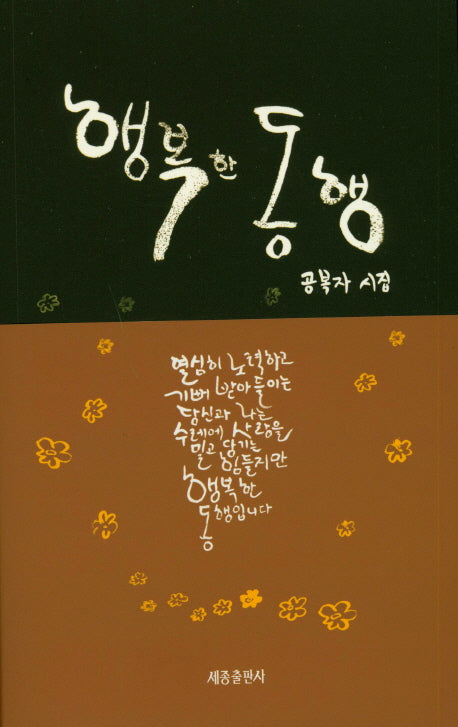 행복한 동행
공복자 시집
열심히 노력하고
기뻐 받아들이는
당신과 나는
수레에 사랑을
밀고 당기는
힘들지만
행복한
동행입니다
세종출판사